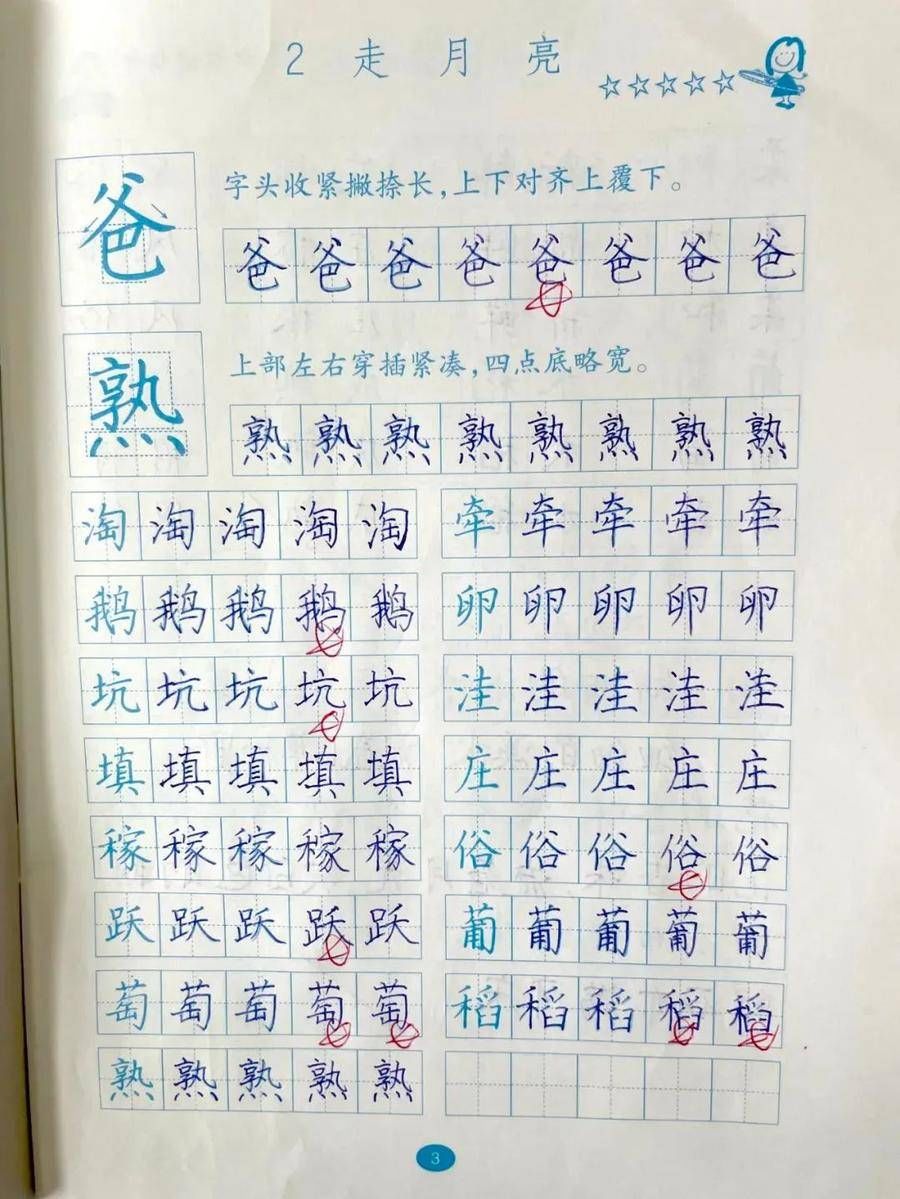 2 走月亮
爸
字头收紧撇捺长，上下对齐上覆下。
爸爸爸爸爸爸爸爸
熟
上部左右穿插紧凑，四点底略宽。
熟熟熟熟熟熟熟熟
淘淘淘淘淘 牵牵牵牵牵
鹅鹅鹅鹅鹅 卵卵卵卵卵
坑坑坑坑坑 洼洼洼洼洼
填填填填填 庄庄庄庄庄
稼稼稼稼稼 俗俗俗俗俗
跃跃跃跃跃 葡葡葡葡葡
萄萄萄萄萄 稻稻稻稻稻
熟熟熟熟熟
3